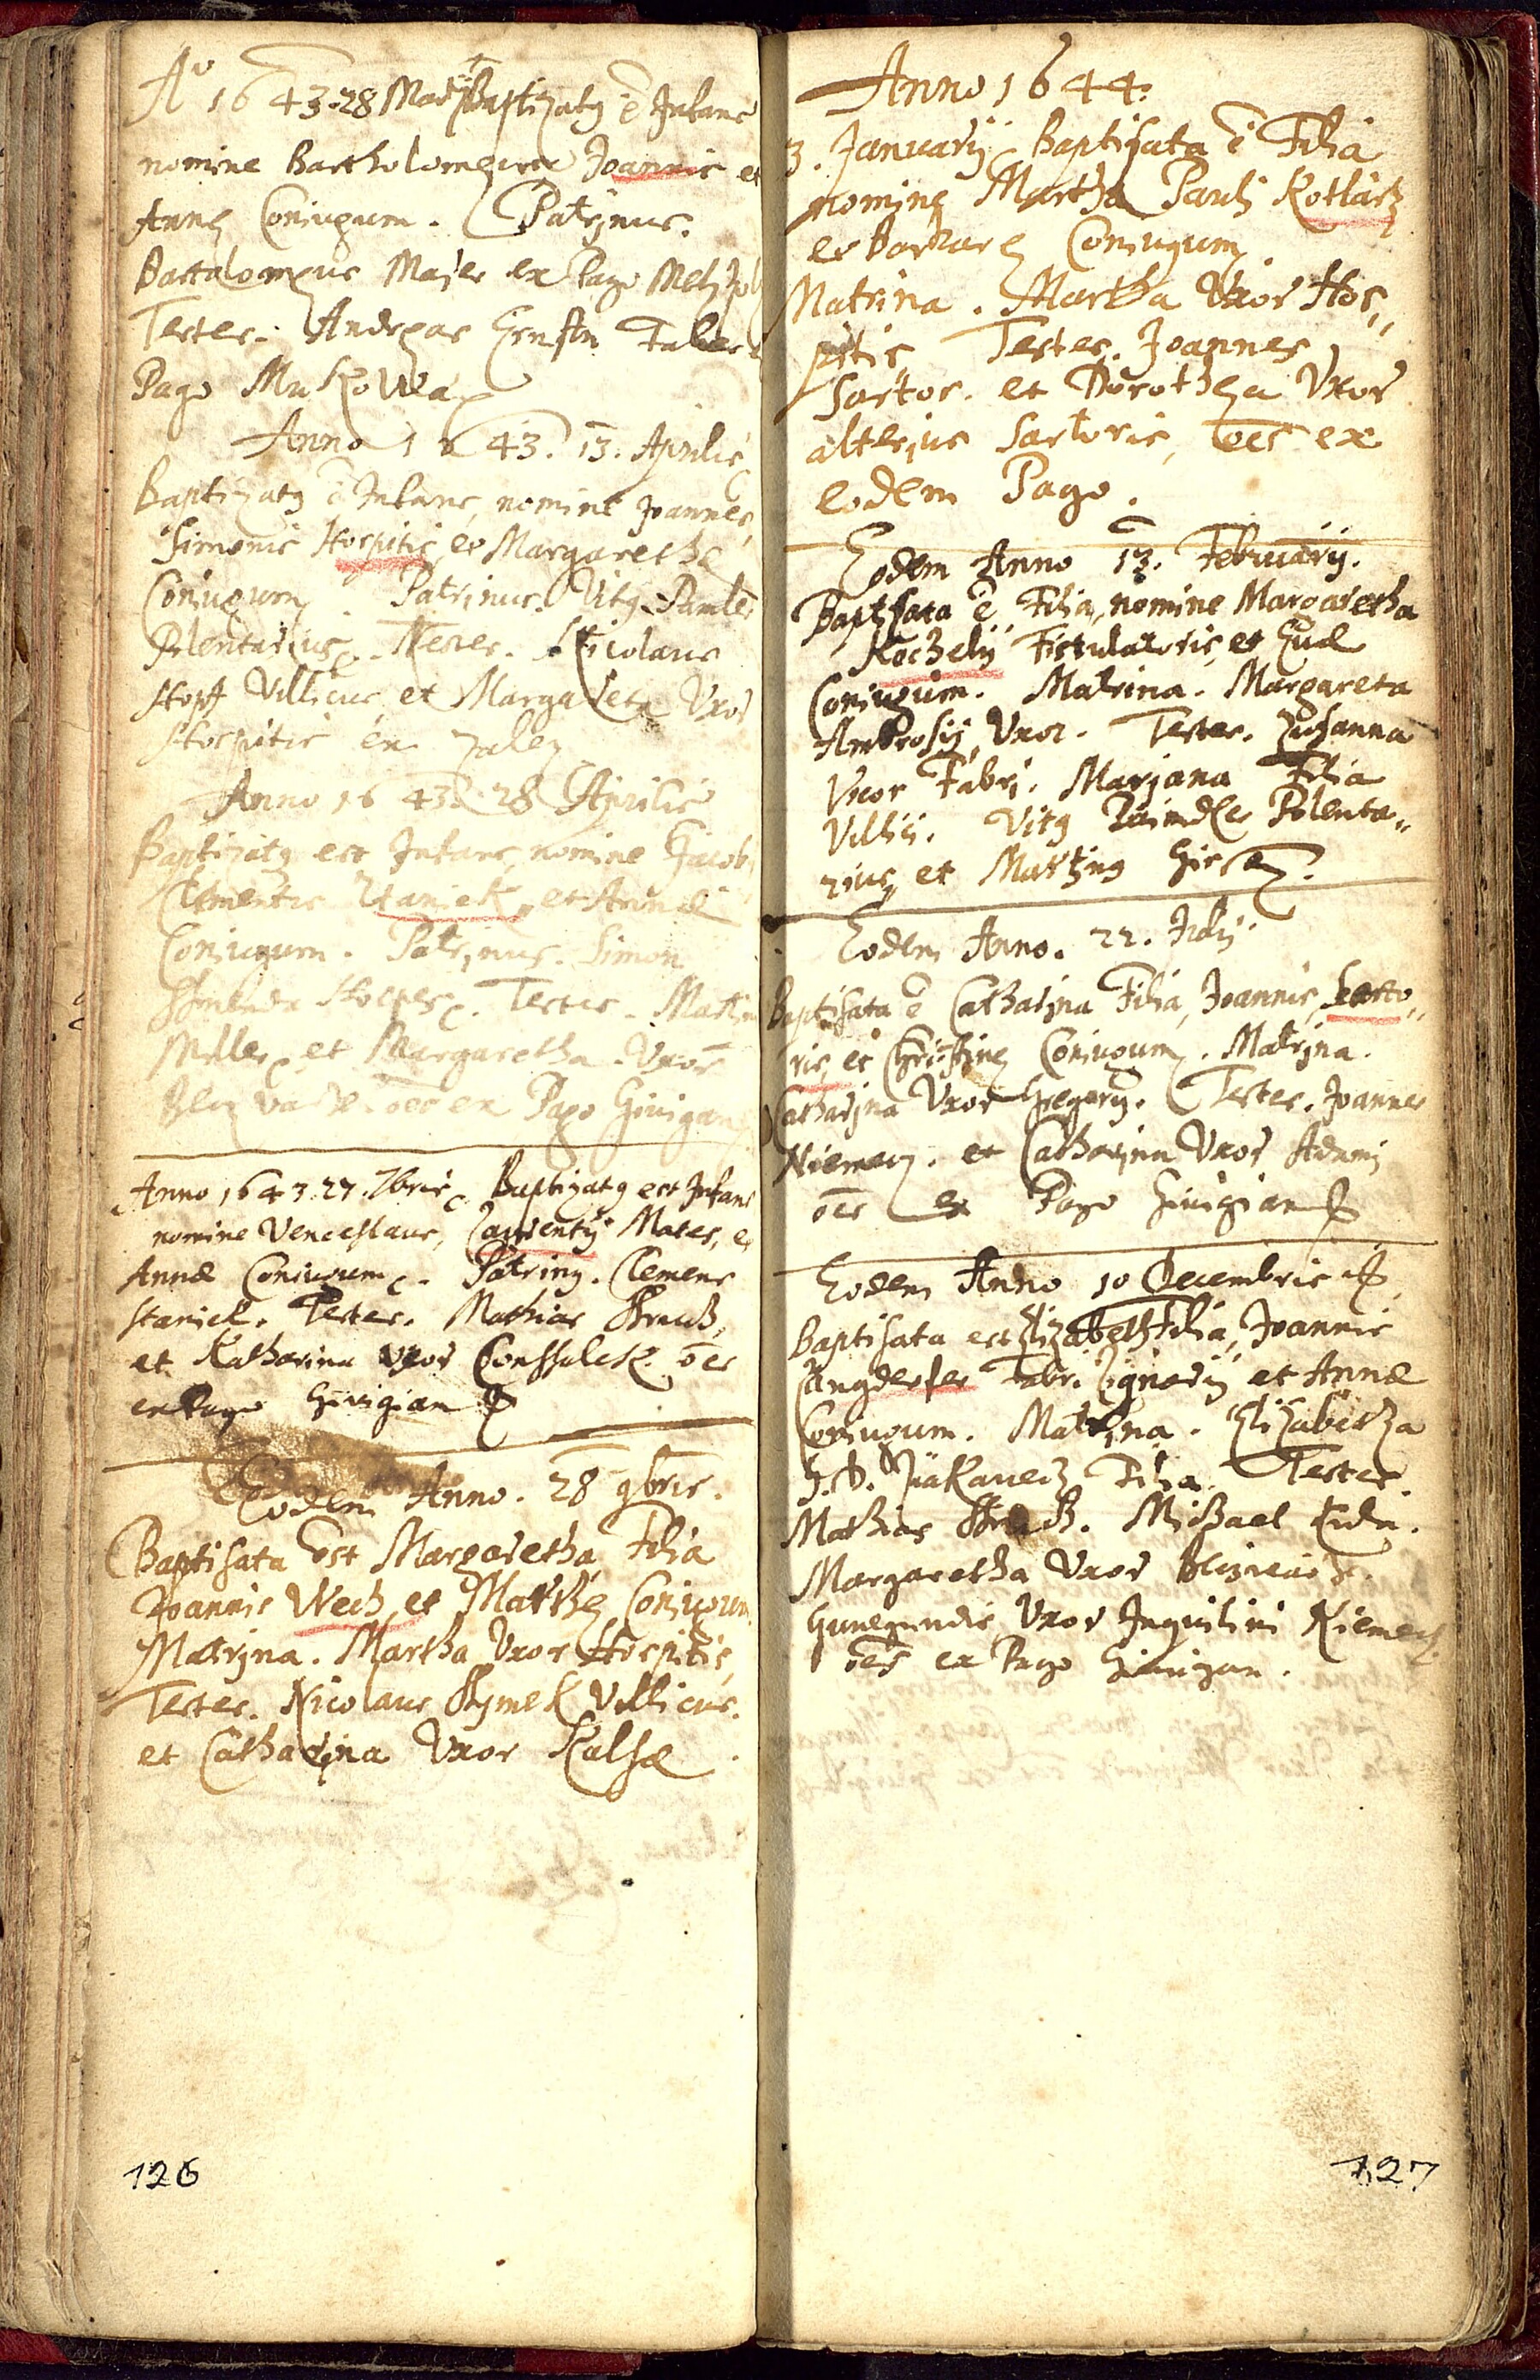 Ao 1643. 28 Maij Baptizatg ē Infans
nomine Bartholomeus Joannis et
Annę Coniugum. Patrinus.
Bartolomęus Majer ex Pago
Testes. Andreas Ernstn Faber
Pago Mukowa
Anno 1643. 13. Aprilis
Baptizatg ē Infans, nomine Joannes,
Simonis Hospitis et Margarethę
Coniugum. Patrinus. Vitg
Polentarius. Testes. Nicolaus
Villicus et Margareta Uxor
Hospitis ex
Anno 1643. 28 Aprilis
Baptizatg est Infans, nomine Jacob
Clementis Staniek, et Annæ
Coniugum. Patrinus. Simon
Hospes. Testes. Martin
Miller et Margaretha Uxor
oēs ex Pago Giuigan
Anno 1643. 27. 7bris Baptizatg est Infans
nomine Venceslaus, Laurentij Mates, et
Annæ Coniugum. Patring. Clemens
Staniek. Testes. Mathias
et Katharina Uxor Conssalek. oēs
ex Pago Giuigian
Eodem Anno. 28 9bris.
Baptisata est Margaretha Filia
Joannis Wech et Marthę Coniugum
Matrina. Martha Uxor Hospitis,
Testes. Nicolaus Villicus.
et Catharina Uxor Kalsæ.
126
Anno 1644.
3. Januarij Baptisata ē Filia
nomine Martha Pauli Kotlarz
et Barbarę Coniugum
Matrina. Martha Uxor Hos„
pitis Testes. Joannes
Sartor. et Dorothea Uxor
alterius Sartoris, oēs ex
eodem Pago.
Eodem Anno 13. Februarij.
Baptisata ē Filia, nomine Margaretha
Koczelij Fistulatoris, et Euæ
Coniugum. Matrina. Margareta
Ambrosij Uxor. Testes. Zusanna
Uxor Fabri. Marjana Filia
Villici. Vitg Polenta„
rius et Marting
Eodem Anno. 22. Julij
Baptisata ē Catharina Filia, Joannis Sarto„
ris, et Christinę Coniugum. Matrina.
Catharina Uxor Gregorij. Testes. Joannes
Niemecz. et Catharina Uxor Adami
oēs ex Pago Giuigian
Eodem Anno 10 Decembris
Baptisata est Elizabeth Filia, Joannis
Langderfer Fabri Lignarij et Annæ
Coniugum. Matrina. Elizabetha
Filia. Testes.
Mathias Michael
Margaretha Uxor
Gunegundis Uxor Inquilini Niemecz
oēs ex Pago Giuigian.
127